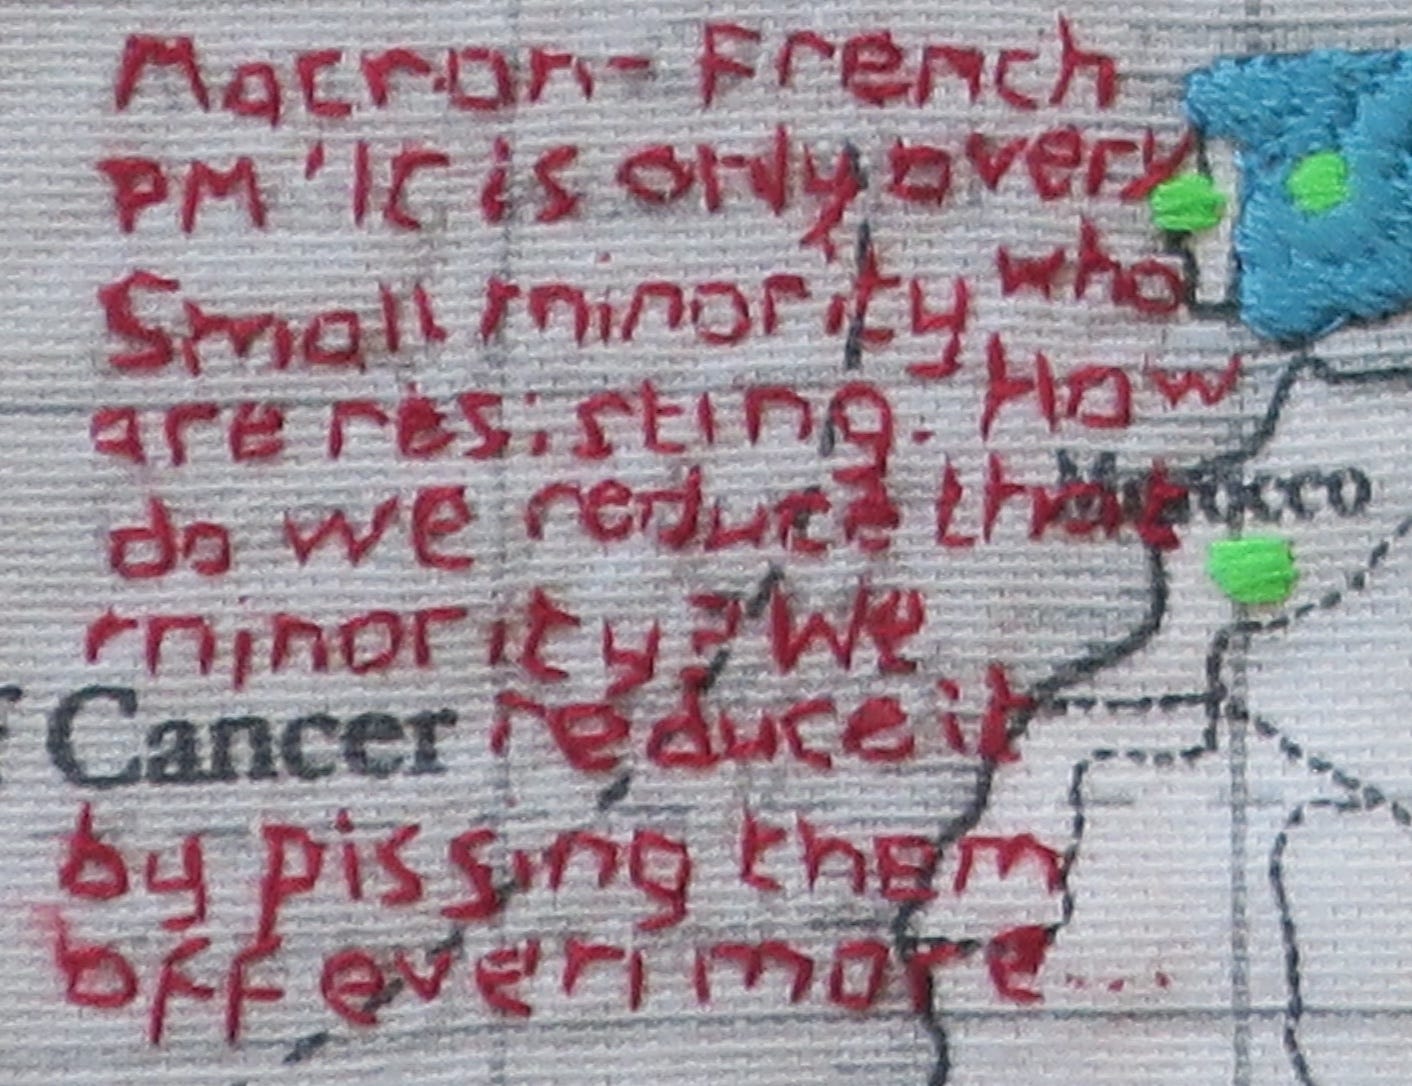 Macron - French
PM 'It is only a very
Small minority who
are resisting. How
do we reduce that
Morocco
minority? We
Cancer reduce it
by pissing them
off even more....